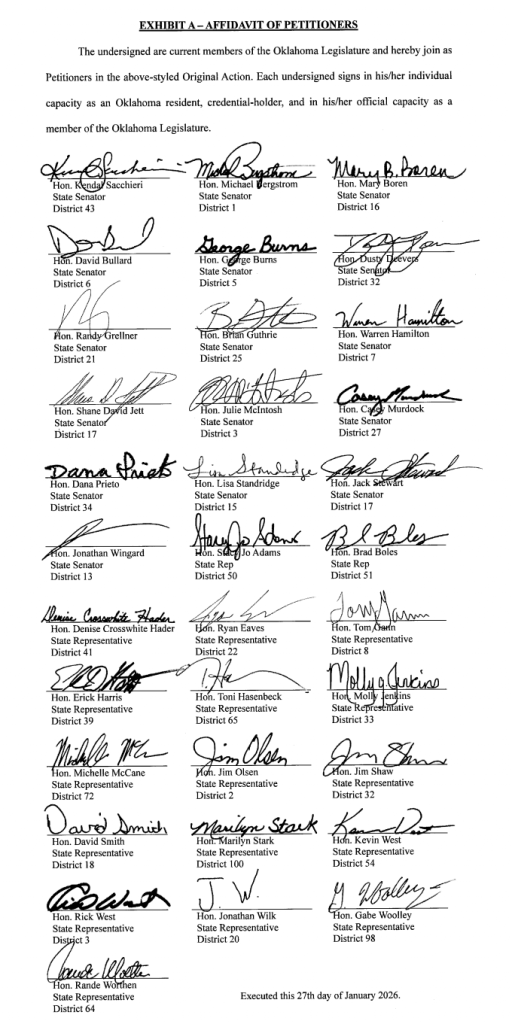 EXHIBIT A – AFFIDAVIT OF PETITIONERS
The undersigned are current members of the Oklahoma Legislature and hereby join as
Petitioners in the above-styled Original Action. Each undersigned signs in his/her individual
capacity as an Oklahoma resident, credential-holder, and in his/her official capacity as a
member of the Oklahoma Legislature.
Hon. Kendal Sacchieri
State Senator
District 43
Michael Bergstrom
Hon. Michael Bergstrom
State Senator
District 1
Mary B. Boren
Hon. Mary Boren
State Senator
District 16
Hon. David Bullard
State Senator
District 6
George Burns
Hon. George Burns
State Senator
District 5
Hon. Dusty Deevers
State Senator
District 32
Hon. Randy Grellner
State Senator
District 21
Hon. Brian Guthrie
State Senator
District 25
Warren Hamilton
Hon. Warren Hamilton
State Senator
District 7
Hon. Shane David Jett
State Senator
District 17
Hon. Julie McIntosh
State Senator
District 3
Casey Murdock
Hon. Casey Murdock
State Senator
District 27
Dana Prieto
Hon. Dana Prieto
State Senator
District 34
Lisa Standridge
Hon. Lisa Standridge
State Senator
District 15
Jack Stewart
Hon. Jack Stewart
State Senator
District 17
Hon. Jonathan Wingard
State Senator
District 13
Stacy Jo Adams
Hon. Stacy Jo Adams
State Rep
District 50
Hon. Brad Boles
State Rep
District 51
Denise Crosswhite Hader
Hon. Denise Crosswhite Hader
State Representative
District 41
Hon. Ryan Eaves
State Representative
District 22
Tom Gann
Hon. Tom Gann
State Representative
District 8
Hon. Erick Harris
State Representative
District 39
Hon. Toni Hasenbeck
State Representative
District 65
Molly Jenkins
Hon. Molly Jenkins
State Representative
District 33
Hon. Michelle McCane
State Representative
District 72
Jim Olsen
Hon. Jim Olsen
State Representative
District 2
Hon. Jim Shaw
State Representative
District 32
David Smith
Hon. David Smith
State Representative
District 18
Marilyn Stark
Hon. Marilyn Stark
State Representative
District 100
Hon. Kevin West
State Representative
District 54
Rick West
Hon. Rick West
State Representative
District 3
J. W.
Hon. Jonathan Wilk
State Representative
District 20
G Woolley
Hon. Gabe Woolley
State Representative
District 98
Hon. Rande Worthen
State Representative
District 64
Executed this 27th day of January 2026.